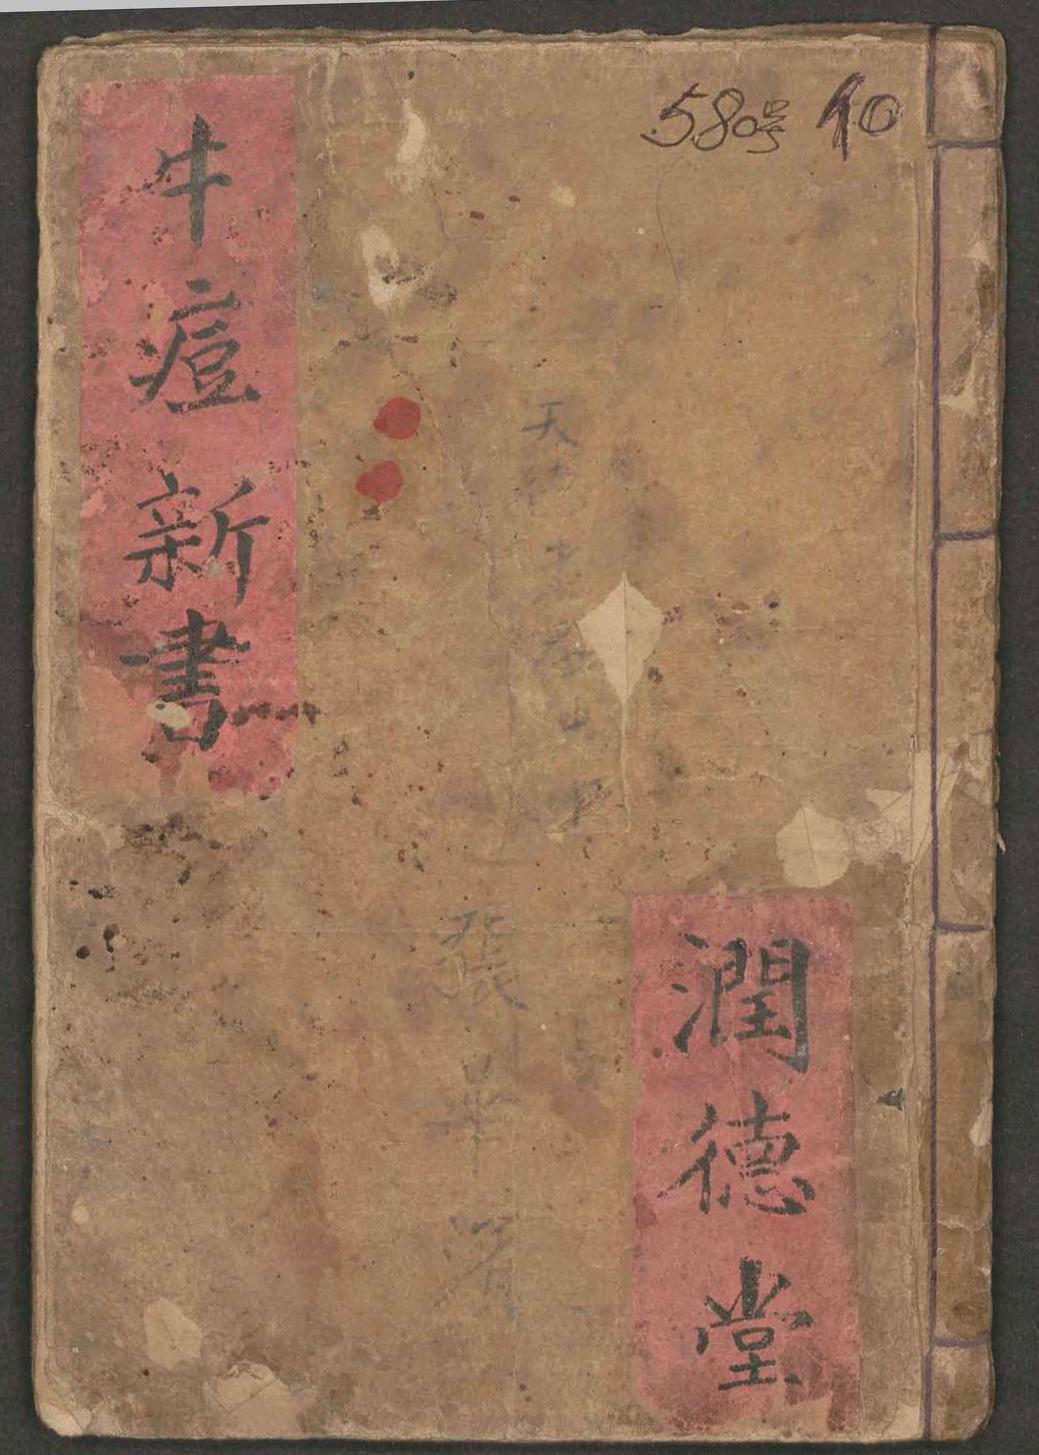 58号 10
牛痘新書
潤德堂